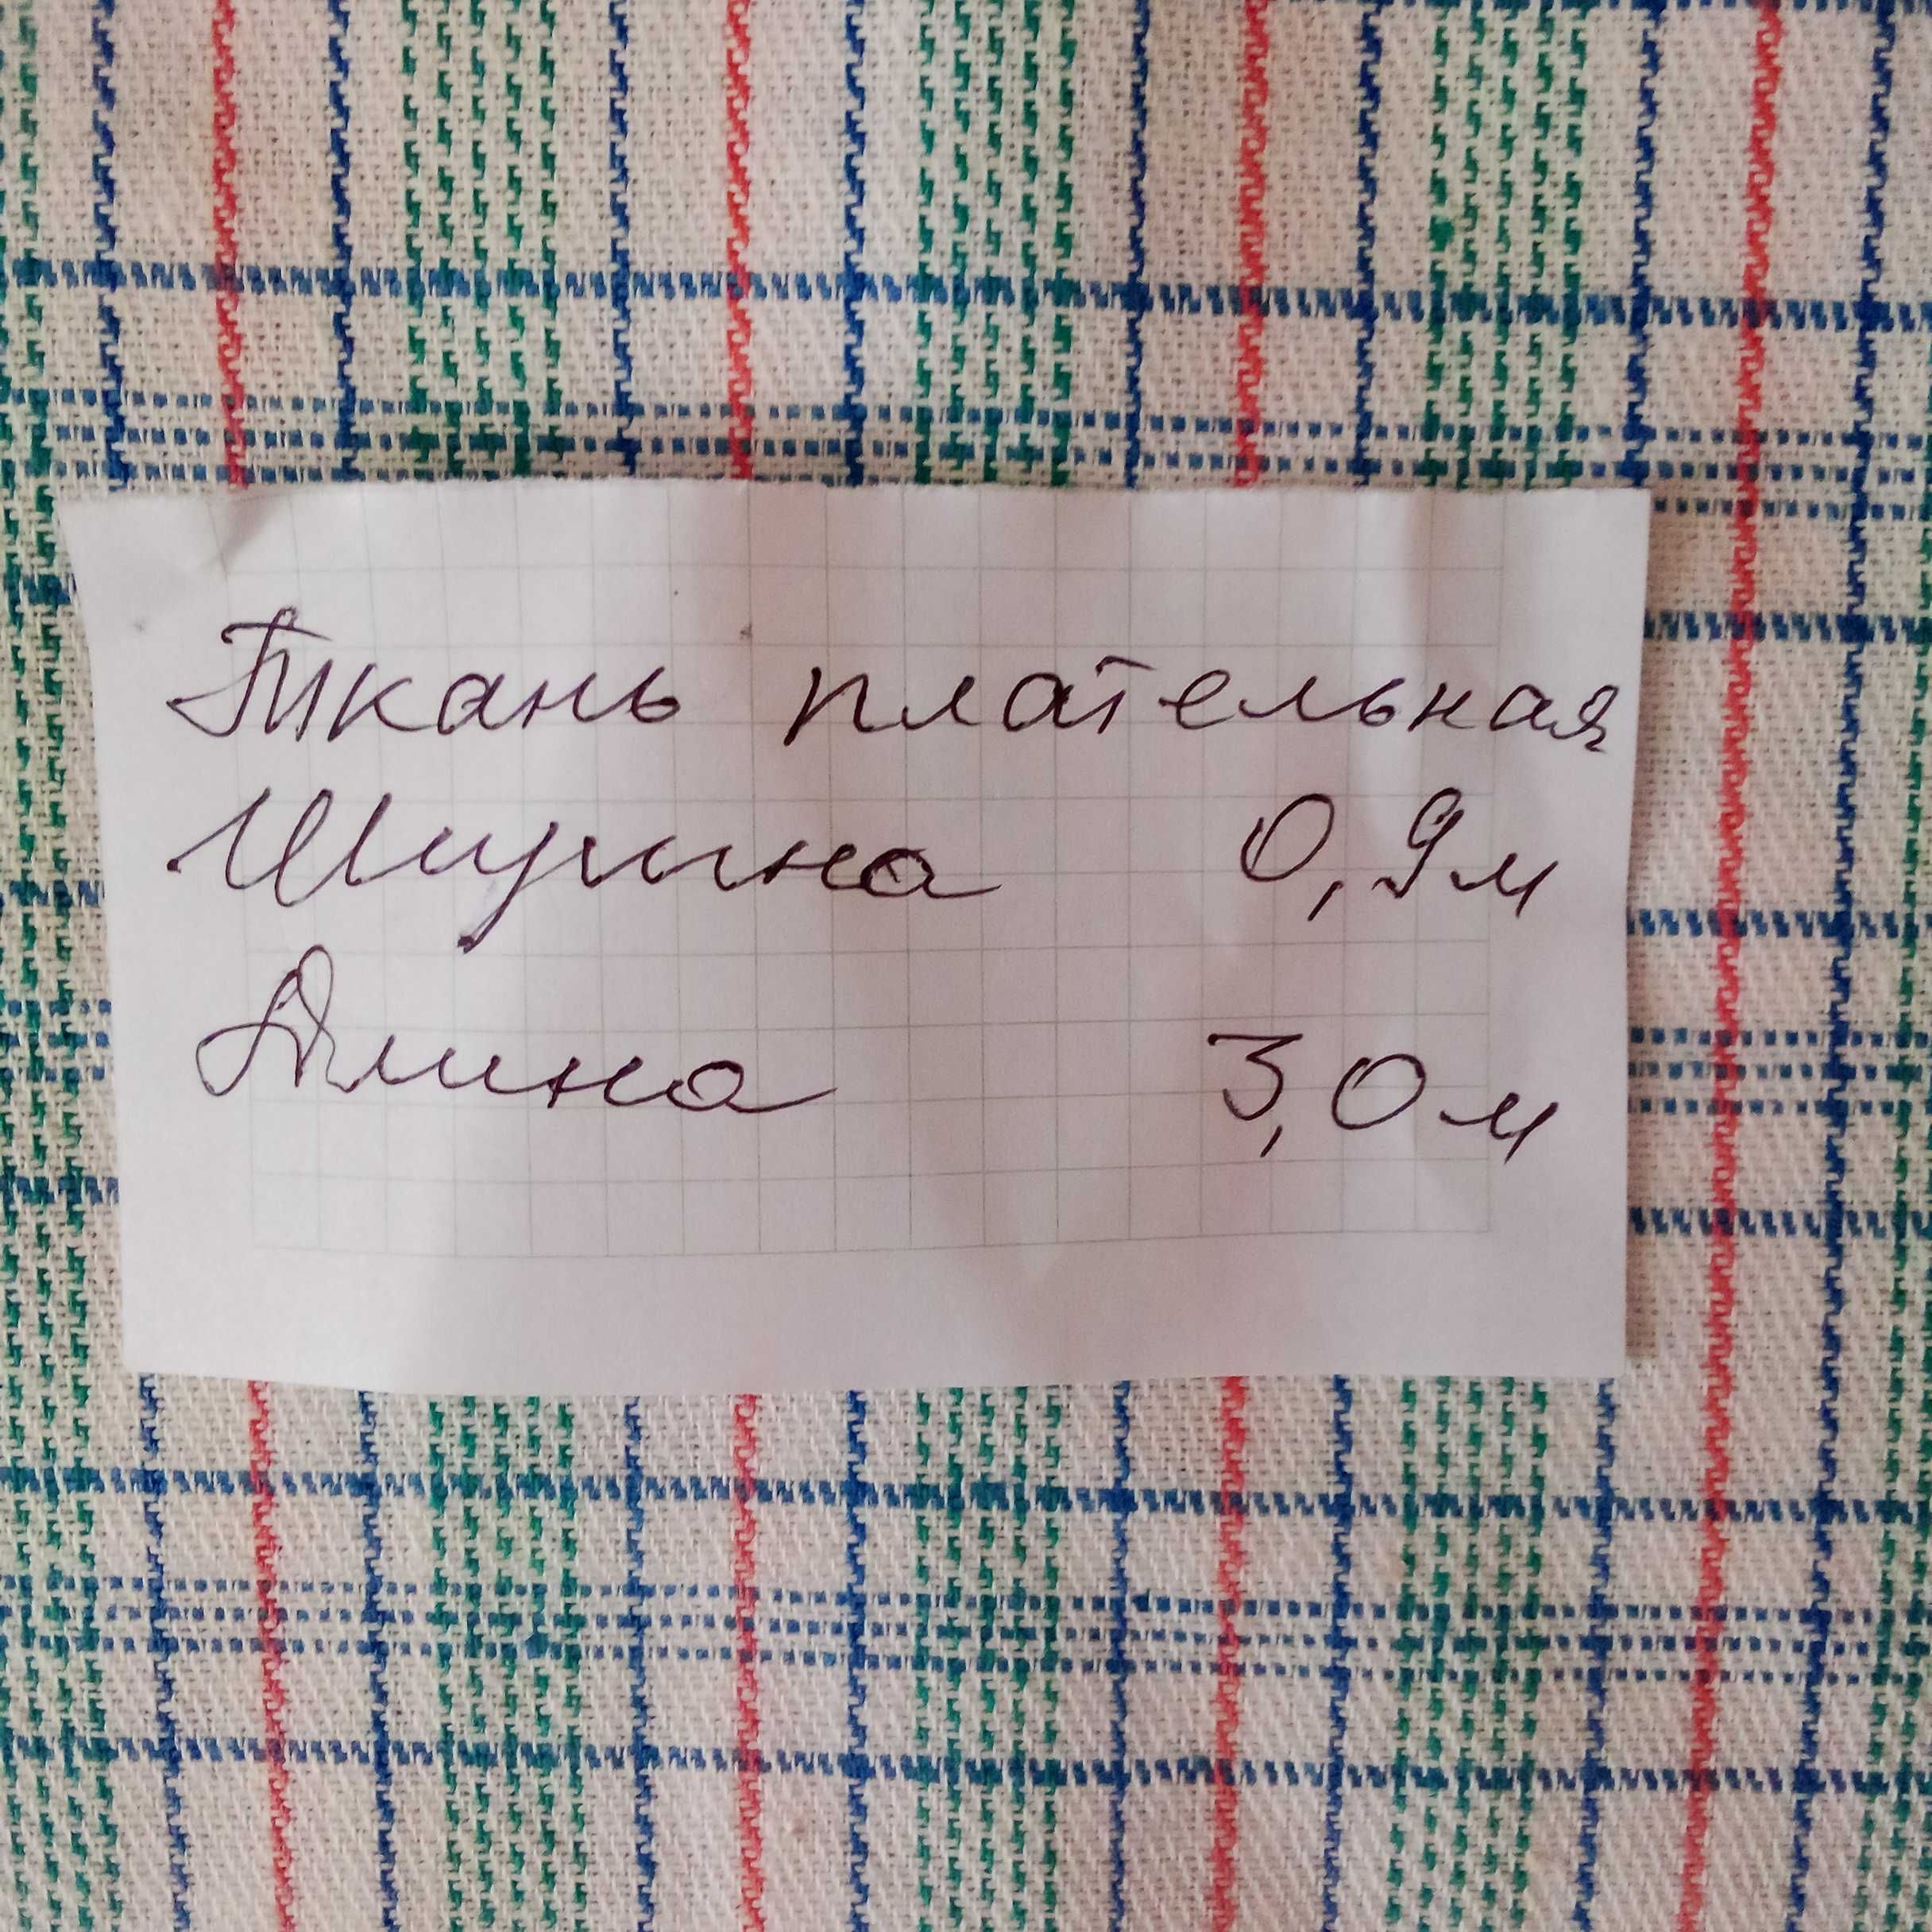 Ткань плательная
Ширина 0,9м
Длина 3,0м